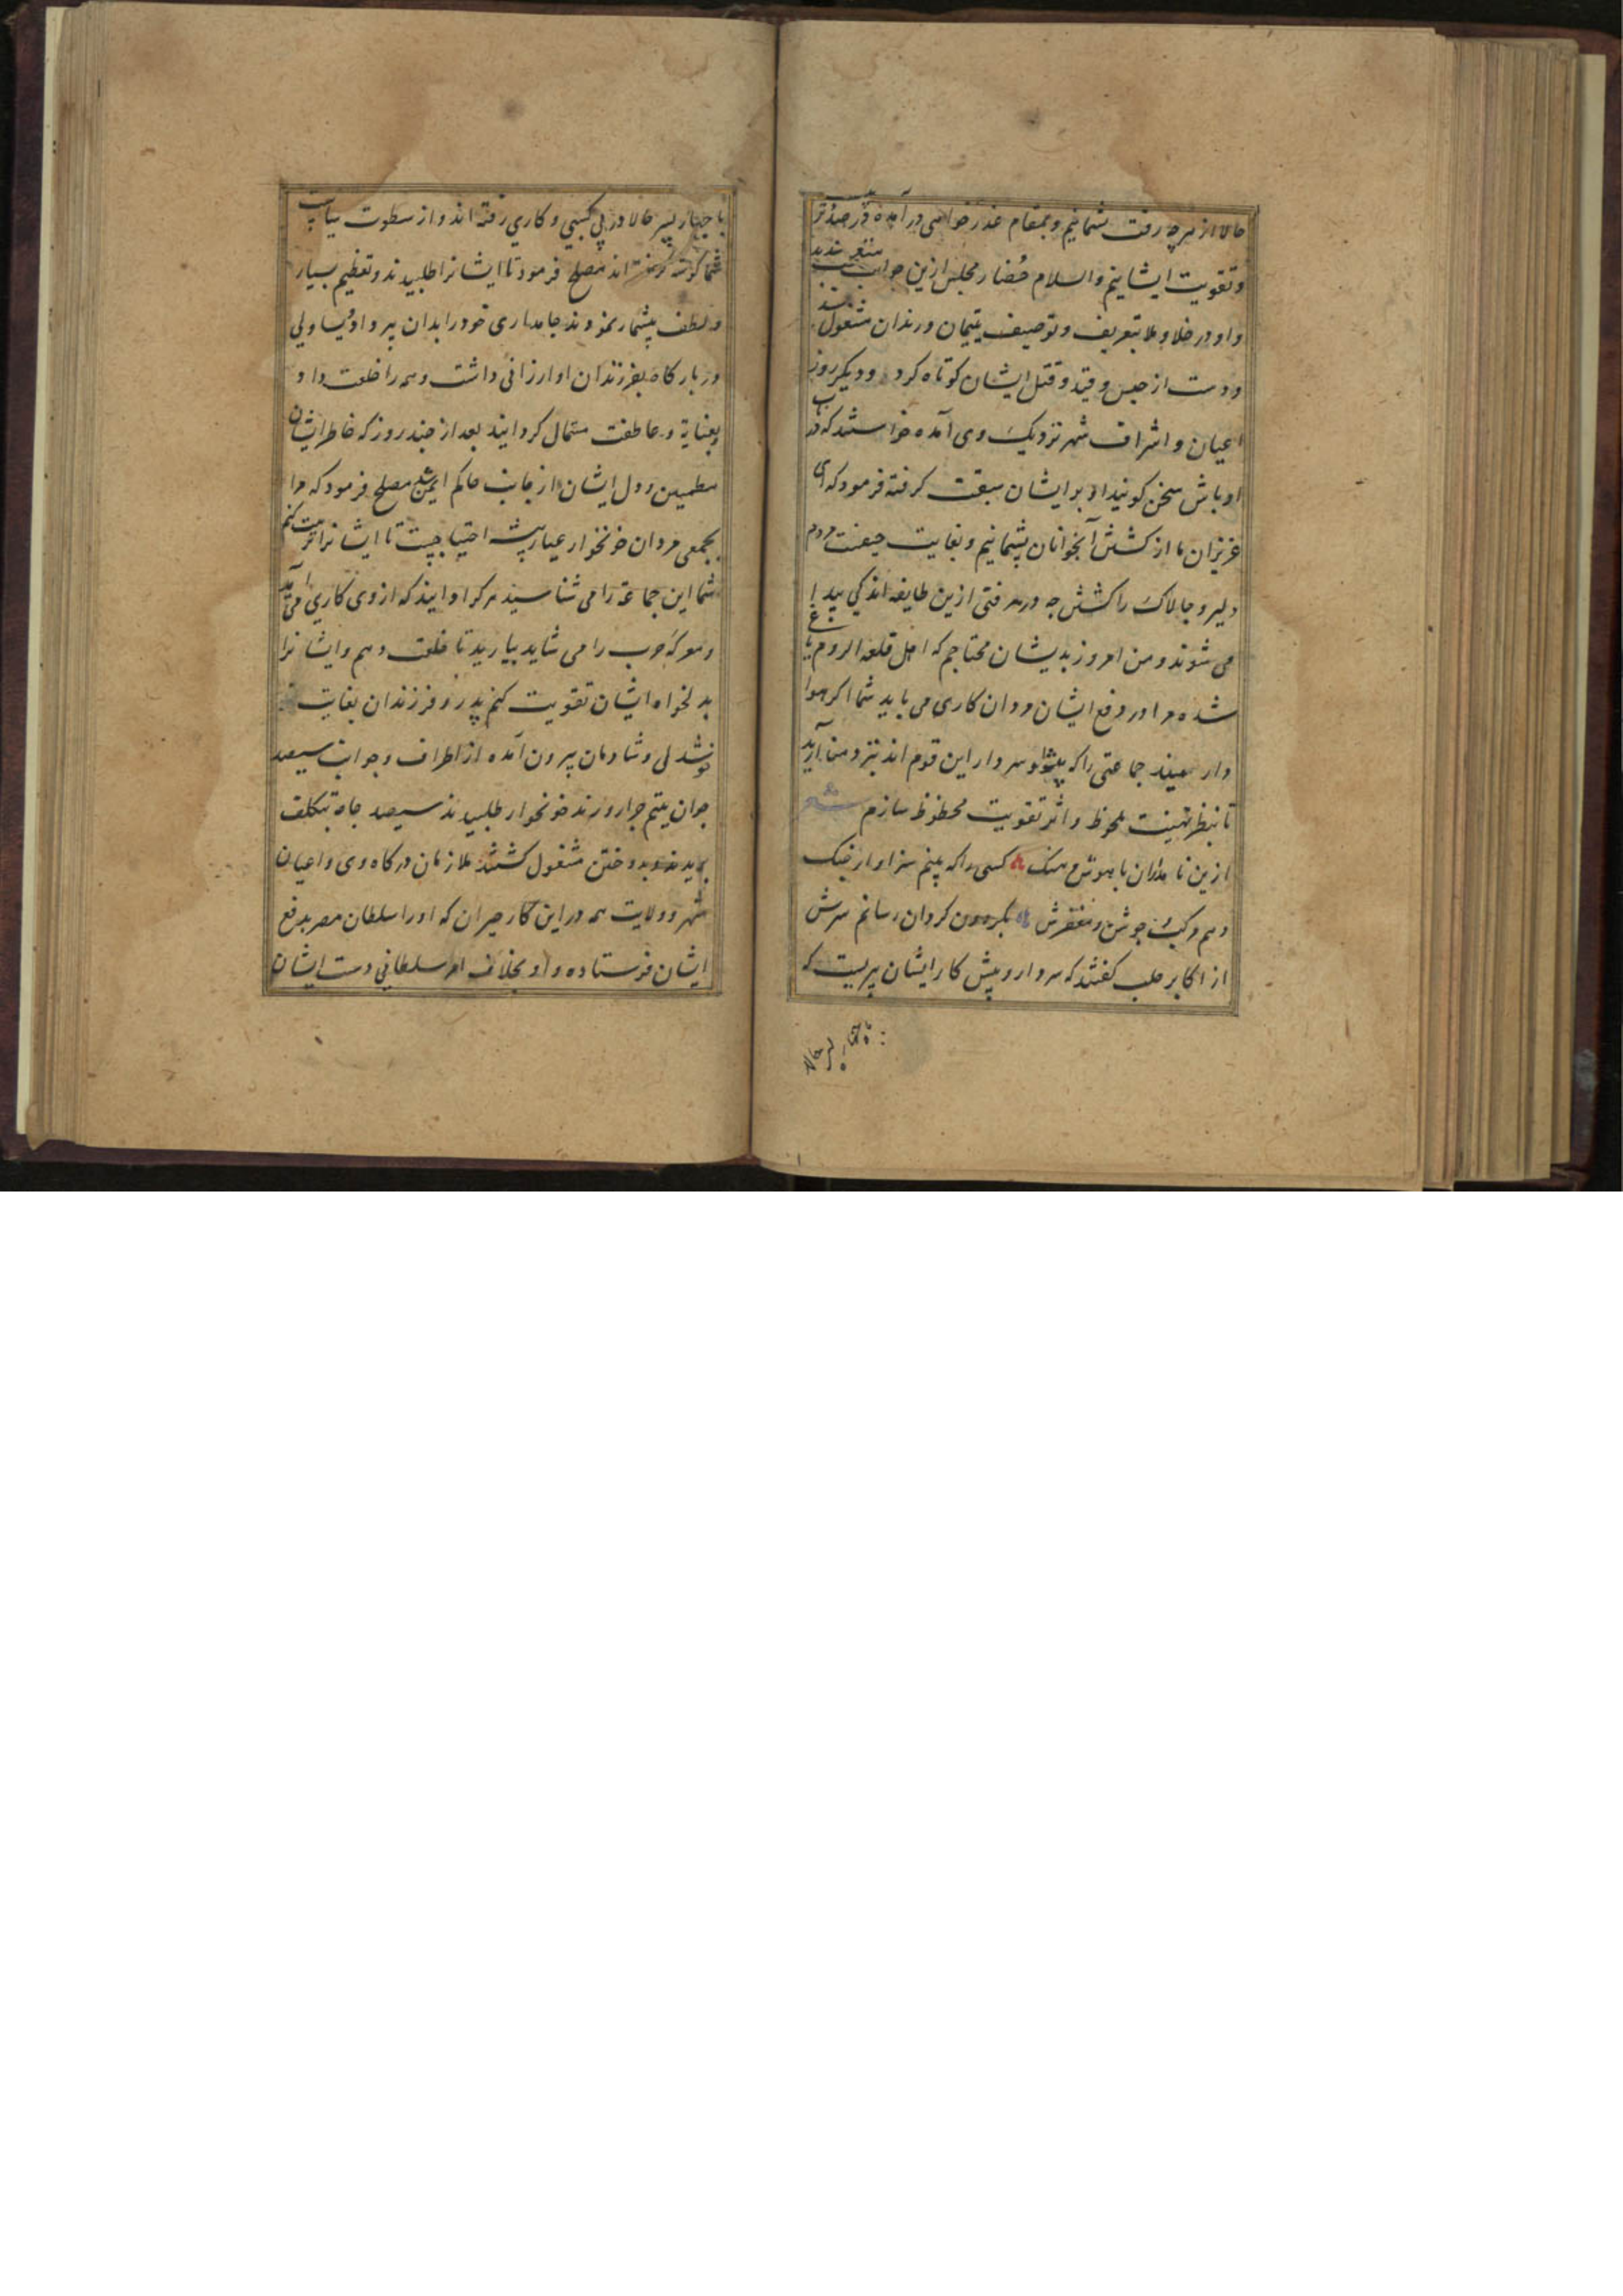 حالا از هرچه رفت پشمانیم و بمقام عذرخواهی در آمده در صدد تربیت
و تقویت ایشانیم والسلام حُضار مجلس ازین جواب متغیر شدند
و او در خلا و ملا بتعریف و توصیف یتیمان و رندان مشغول شد
و دست از حبس و قید و قتل ایشان کوتاه کرد و دیکر روز
اعیان و اشراف شهر نزدیک وی آمده خواستند که در باب
اوباش سخن کویند او بر ایشان سبقت کرفته فرمود که ای
عزیزان ما از کشش آنجوانان پشیمانیم و بغایت حیفست مردم
دلیر و چالاک را کشش چه در هر فتی ازین طایفه اندکی پیدا
می شوند و من امروز بدیشان محتاجم که اهل قلعه الروم یاغی
شده مرا در دفع ایشان مردان کاری می باید شما اکر هوا
دار منید جماعتی را که پیشوا و سردار این قوم اند بنزد من آرید
تا بنظر تهنیت ملحوظ و اثر تقویت محظوظ سازم شعر
ازین نامداران با هوش و هنک کسی را که بینم سزاوار جنک
دهم مرکب جوشن و مغفرش بکردون کردان رسانم سرش
از اکابر حلب کفتند که سردار و پیش کار ایشان پیریست که
با چهار پسر حالا
با چهار پسر حالا در پی کسبی و کاری رفته اند و از سطوت سیاست
شما کوشه کرفته اند مصلح فرمود تا ایشانرا طلبیدند و تعظیم بسیار
و لطف بیشمار نمودند جامداری خود را بدان پیر داد و یساولی
دربار کاه بفرزندان او ارزانی داشت و همه را خلعت داد و
بعنایة و عاطفت مستمال کردانید بعد از چند روز که خاطر ایشان
مطمین و دل ایشان از جانب حاکم ایمن شد مصلح فرمود که مرا
بجمعی مردان خونخوار عیار پیشه احتیاجیست تا ایشانرا تربیت کنم
شما این جماعة را می شناسید هر کرا دانید که از وی کاری می آید
و معرکه حرب را می شاید بیارید تا خلعت دهم و ایشانرا
بدلخواه ایشان تقویت کنم پدر و فرزندان بغایت
خوشدلی و شادمان بیرون آمده از اطراف و جوانب سیصد
جوان یتیم جرار و رند خونخوار طلبیدند سیصد جامه بتکلف
بریدند و بدوختن مشغول کشتند ملازمان درکاه وی و اعیان
شهر و ولایت همه در این کار حیران که او را سلطان مصر بدفع
ایشان فرستاده و او بخلاف امر سلطانی دست ایشان